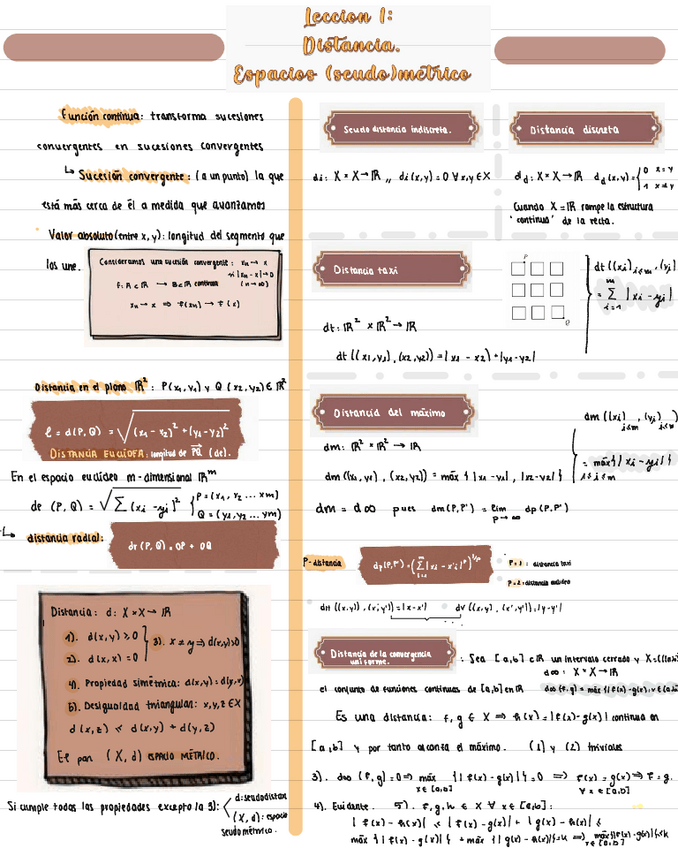 Leccion 1:
Distancia.
Espacios (seudo)métrico
Función continua: transforma sucesiones
convergentes en sucesiones convergentes
↳ Sucesión convergente: (a un punto) la que
está más cerca de él a medida que avanzamos
Valor absoluto (entre x, y): longitud del segmento que
los une.
Consideramos una sucesión convergente: xn → x
si |xn - x| → 0
f: A ⊂ ℝ → B ⊂ ℝ continua (n → ∞)
xn → x ⇒ f(xn) → f(x)
Distancia en el plano ℝ²: P(x₁, y₁) y Q(x₂, y₂) ∈ ℝ²
ℓ = d(P, Q) = √(x₁ - x₂)² + (y₁ - y₂)²
DISTANCIA EUCLÍDEA: longitud de PQ (de).
En el espacio euclídeo m-dimensional ℝᵐ
de (P, Q) = √∑(xi - yi)² { P = (x₁, x₂ ... xm)
Q = (y₁, y₂ ... ym)
↳ distancia radial:
dr (P, Q) = OP + OQ
Distancia: d: X × X → ℝ
1). d(x, y) ≥ 0
2). d(x, x) = 0
3). x ≠ y ⇒ d(x, y) > 0
4). Propiedad simétrica: d(x, y) = d(y, x)
5). Desigualdad triangular: x, y, z ∈ X
d(x, z) ≤ d(x, y) + d(y, z)
El par (X, d) ESPACIO MÉTRICO.
Si cumple todas las propiedades excepto la 3): d: seudodistan
(X, d): espacio
seudométrico.
Seudodistancia indiscreta.
di: X × X → ℝ ,, di(x, y) = 0 ∀ x, y ∈ X
Distancia discreta
dd: X × X → ℝ dd(x, y) = { 0 x = y
1 x ≠ y
Cuando X = ℝ rompe la estructura
"continua" de la recta.
Distancia taxi
dt: ℝ² × ℝ² → ℝ
dt ((x₁, y₁), (x₂, y₂)) = |x₁ - x₂| + |y₁ - y₂|
P
Q
dt ((xi) i≤m, (yi)
= ∑ |xi - yi|
Distancia del máximo
dm: ℝ² × ℝ² → ℝ
dm ((x₁, y₁), (x₂, y₂)) = máx { |x₁ - x₂|, |y₁ - y₂| }
dm ((xi) i≤m, (yi) i≤m)
= máx { |xi - yi| }
1≤i≤m
dm = d∞ pues dm(P, P') = lim dp(P, P')
p → ∞
P-distancia
dp(P, P') = (∑ |xi - x'i|ᵖ)^1/p
P = 1: distancia taxi
P = 2: distancia euclídea
dH ((x, y), (x', y')) = |x - x'| dV ((x, y), (x', y')) = |y - y'|
Distancia de la convergencia
uniforme.
: Sea [a, b] ⊂ ℝ un intervalo cerrado y X = C([a,b]
d∞: X × X → ℝ
el conjunto de funciones continuas de [a, b] en ℝ d∞ (f, g) = máx { |f(x) - g(x)|, x ∈ [a,b]
Es una distancia: f, g ∈ X ⇒ h(x) = |f(x) - g(x)| continua en
[a, b] y por tanto alcanza el máximo. (1) y (2) triviales
3). d∞ (f, g) = 0 ⇒ máx { |f(x) - g(x)| } = 0 ⇒ f(x) = g(x) ⇒ f = g.
x ∈ [a,b] ∀ x ∈ [a,b]
4). Evidente. 5). f, g, h ∈ X ∀ x ∈ [a, b]:
|f(x) - h(x)| ≤ |f(x) - g(x)| + |g(x) - h(x)| ≤
máx { |f(x) - g(x)| } + máx { |g(x) - h(x)| }